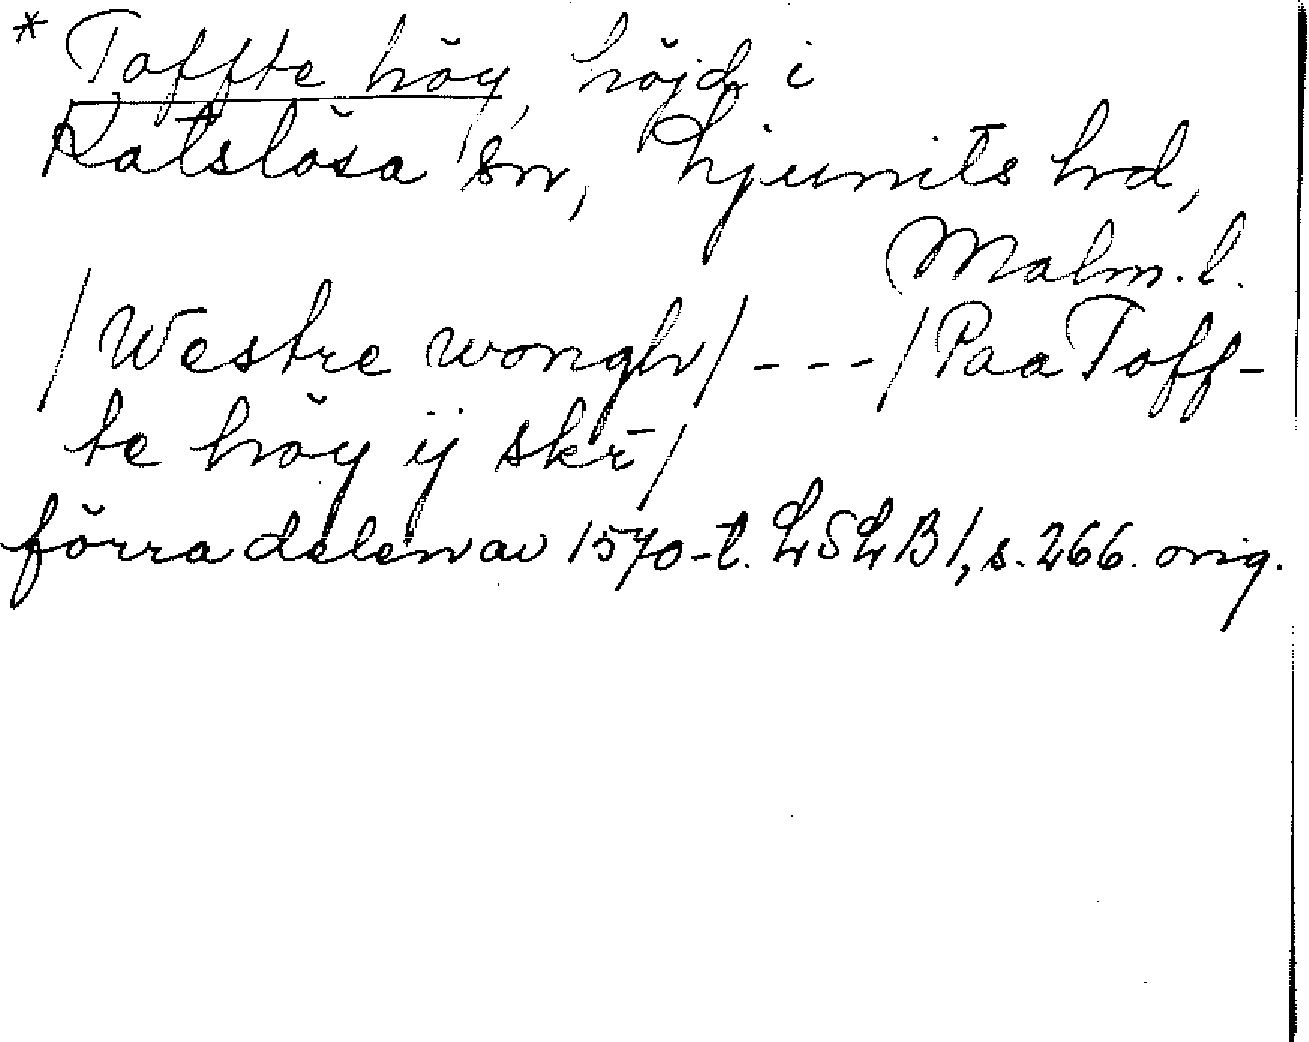 * Toffte höy, höjd i
Katslösa sn, Ljunits hd,
Malm. l.
/Westre wongh/ - - - /Paa Toff-
te höy ij skr̄/
förra delen av 1570-t. LSLB 1, s. 266. orig.